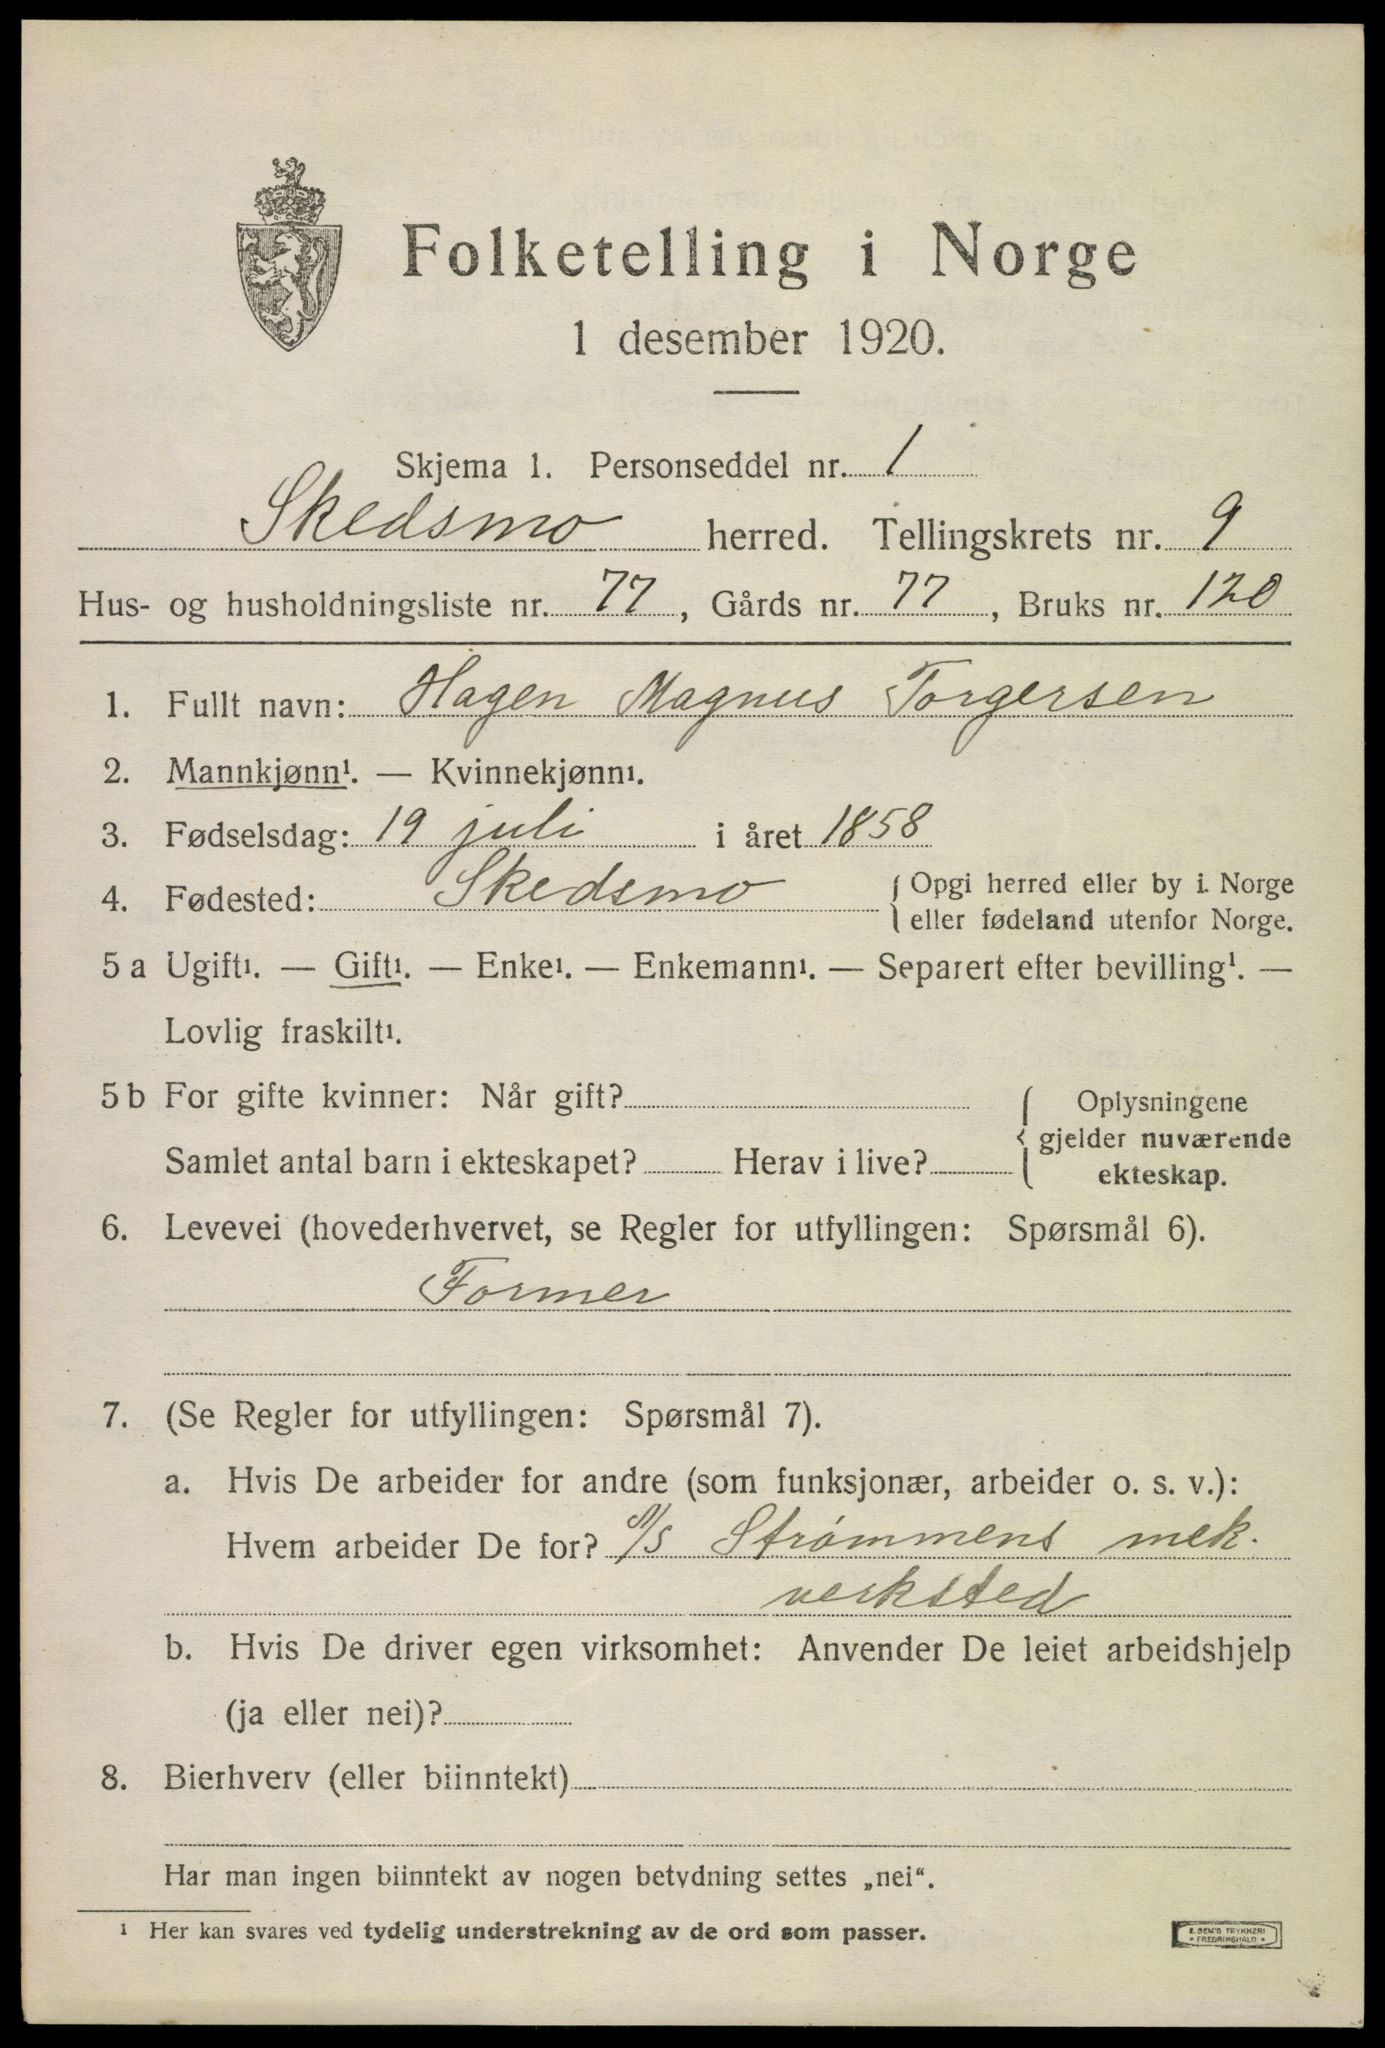 Folketelling i Norge
1 desember 1920.
Skjema 1. Personseddel nr. 1
Skedsmo herred. Tellingskrets nr. 9
Hus- og husholdningsliste nr. 77, Gårds nr. 77, Bruks nr. 120
1. Fullt navn: Hagen Magnus Torgersen
2. Mannkjønn¹. — Kvinnekjønn¹.
3. Fødselsdag: 19 juli i året 1858
4. Fødested: Skedsmo { Opgi herred eller by i Norge
eller fødeland utenfor Norge.
5 a Ugift¹. — Gift¹. — Enke¹. — Enkemann¹. — Separert efter bevilling¹. —
Lovlig fraskilt¹.
5 b For gifte kvinner: Når gift? { Oplysningene
gjelder nuværende
Samlet antal barn i ekteskapet? Herav i live?
ekteskap.
6. Levevei (hovederhvervet, se Regler for utfyllingen: Spørsmål 6).
Former
7. (Se Regler for utfyllingen: Spørsmål 7).
a. Hvis De arbeider for andre (som funksjonær, arbeider o. s. v.):
Hvem arbeider De for? A/S Strømmens mek.
verksted
b. Hvis De driver egen virksomhet: Anvender De leiet arbeidshjelp
(ja eller nei)?
8. Bierhverv (eller biinntekt)
Har man ingen biinntekt av nogen betydning settes „nei“.
¹ Her kan svares ved tydelig understrekning av de ord som passer.
E. SEM'S TRYKKERI
* FREDRIKSHALD *